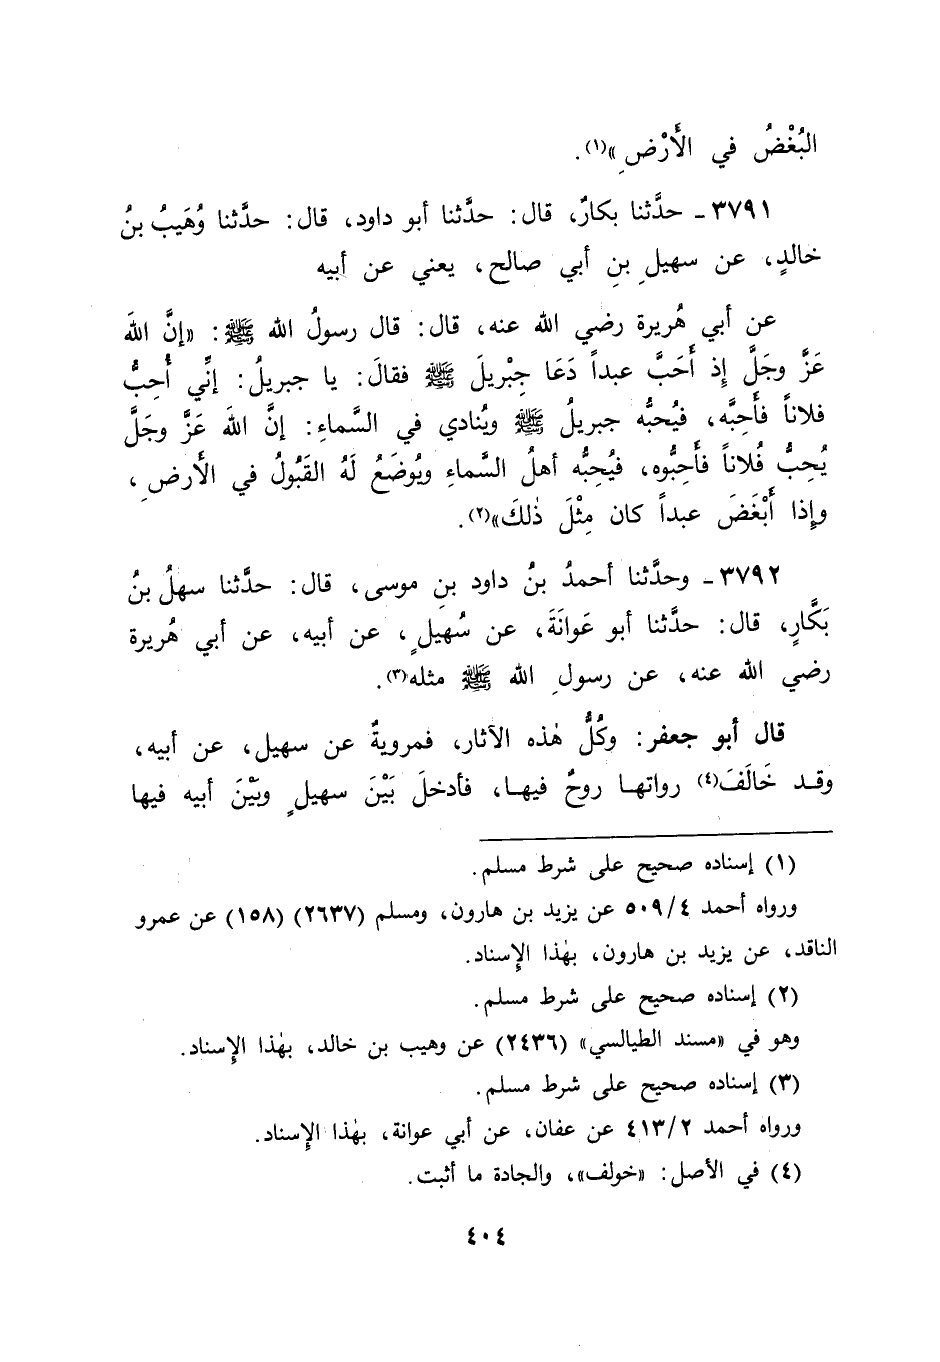 البُغْضُ في الأَرْضِ»(١).
٣٧٩١ـ حدَّثنا بكارٌ، قال: حدَّثنا أبو داود، قال: حدَّثنا وُهَيبُ بنُ
خالدٍ، عن سهيلِ بنِ أبي صالح، يعني عن أبيه
عن أبي هُريرة رضي الله عنه، قال: قال رسولُ الله ﷺ: «إنَّ اللهَ
عَزَّ وجَلَّ إذ أَحَبَّ عبداً دَعَا جِبْريلَ ﷺ فقالَ: يا جبريلُ: إنِّي أُحِبُّ
فلاناً فأَحِبَّه، فيُحبُّه جبريلُ ﷺ ويُنادي في السَّماءِ: إنَّ اللهَ عَزَّ وجَلَّ
يُحِبُّ فُلاناً فأَحِبُّوه، فيُحِبُّه أهلُ السَّماءِ ويُوضَعُ لَهُ القَبُولُ في الأَرضِ،
وإذا أَبْغَضَ عبداً كان مِثْلَ ذٰلكَ»(٢).
٣٧٩٢ـ وحدَّثنا أحمدُ بنُ داود بنِ موسى، قال: حدَّثنا سهلُ بنُ
بَكَّارٍ، قال: حدَّثنا أبو عَوانَةَ، عن سُهيلٍ، عن أبيه، عن أبي هُريرة
رضي الله عنه، عن رسولِ الله ﷺ مثله(٣).
قال أبو جعفر: وكُلُّ هٰذه الآثار، فمرويةٌ عن سهيل، عن أبيه،
وقد خَالَفَ(٤) رواتها روحٌ فيها، فأدخلَ بَيْنَ سهيلٍ وبَيْنَ أبيه فيها
(١) إسناده صحيح على شرط مسلم.
ورواه أحمد ٥٠٩/٤ عن يزيد بن هارون، ومسلم (٢٦٣٧) (١٥٨) عن عمرو
الناقد، عن يزيد بن هارون، بهٰذا الإِسناد.
(٢) إسناده صحيح على شرط مسلم.
وهو في «مسند الطيالسي» (٢٤٣٦) عن وهيب بن خالد، بهٰذا الإِسناد.
(٣) إسناده صحيح على شرط مسلم.
ورواه أحمد ٤١٣/٢ عن عفان، عن أبي عوانة، بهٰذا الإِسناد.
(٤) في الأصل: «خولف»، والجادة ما أثبت.
٤٠٤